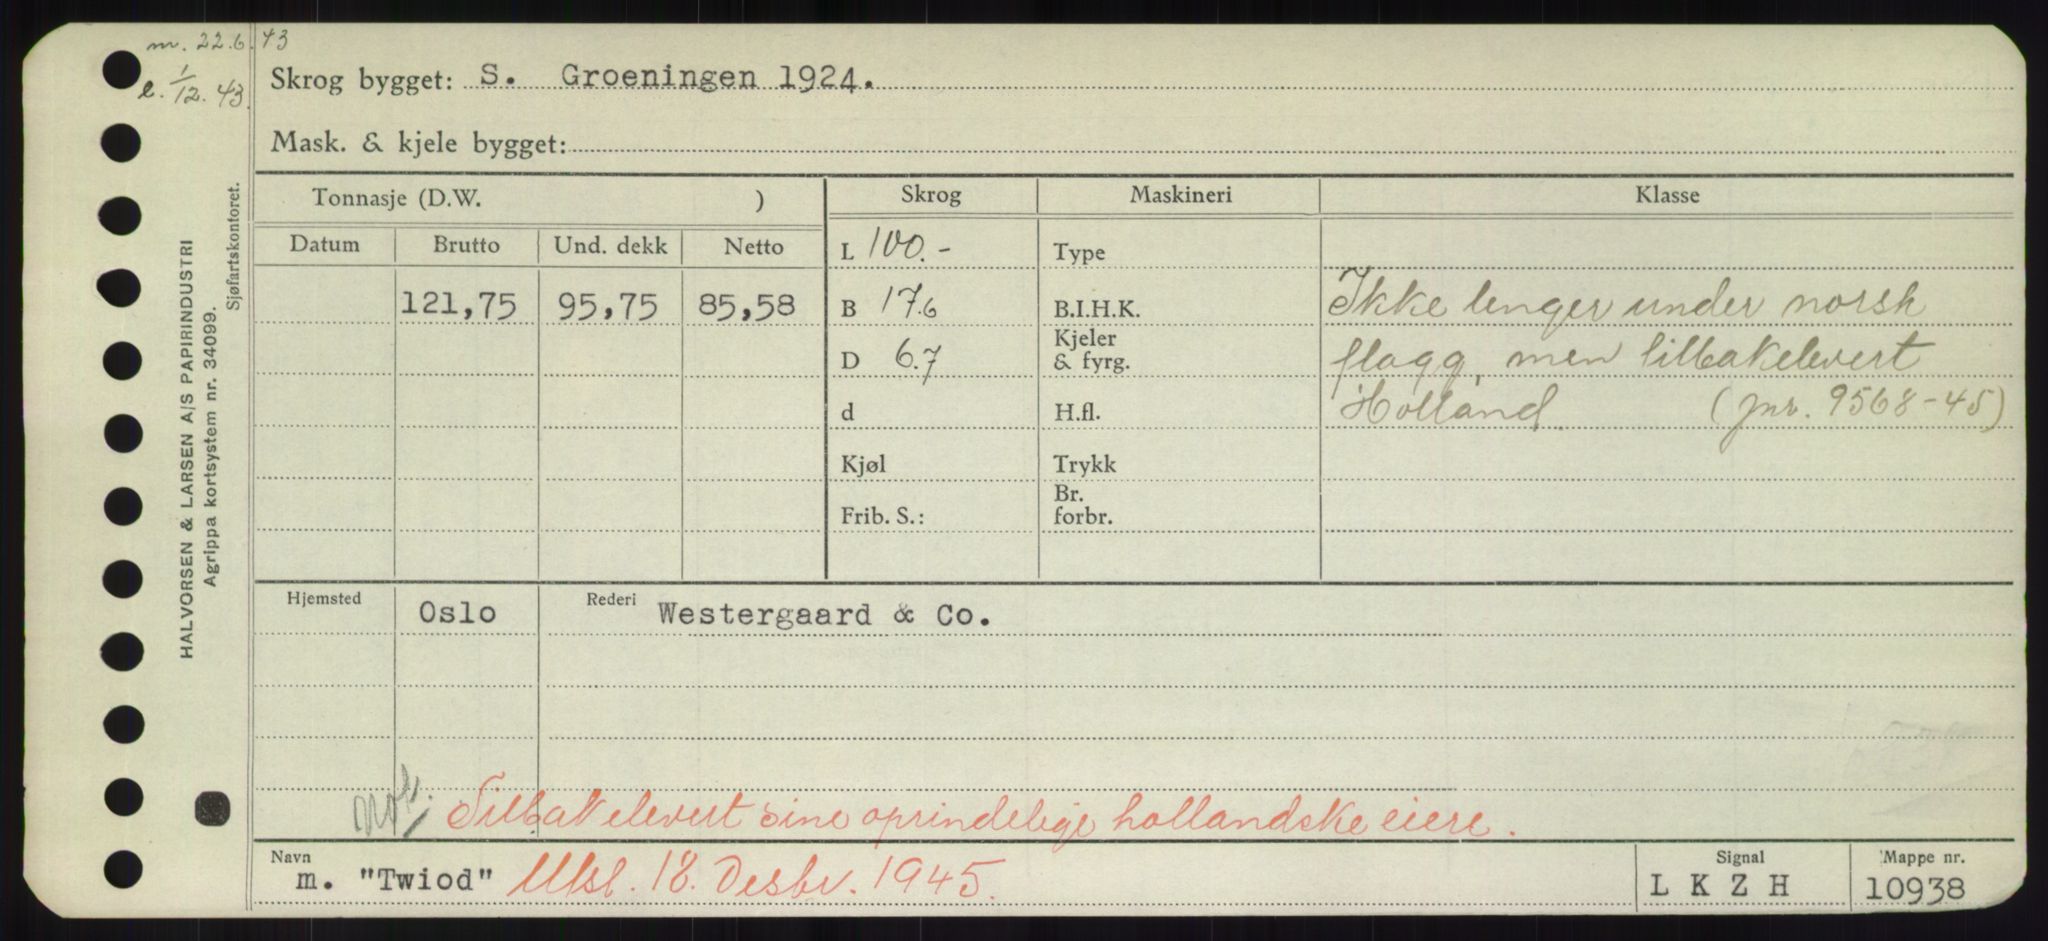 m. 22.6.43
e. 1/12. 43.
Skrog bygget: S. Groeningen 1924.
Mask. & kjele bygget:
HALVORSEN & LARSEN A/S PAPIRINDUSTRI
Agrippa kortsystem nr. 34099.
Sjøfartskontoret.
Tonnasje (D.W. )
Skrog
Maskineri
Klasse
Datum
Brutto
Und. dekk
Netto
121,75
95,75
85,58
L 100.-
B 17.6
D 6.7
d
Kjøl
Frib. S.:
Type
B.I.H.K.
Kjeler
& fyrg.
H.fl.
Trykk
Br.
forbr.
Ikke lenger under norsk
flagg, men tilbakelevert
Holland (jnr. 9568-45)
Hjemsted Oslo
Rederi Westergaard & Co.
not. Tilbakelevert sine oprindelige hollandske eiere.
Navn m. "Twiod" Utsl. 18. Desbr. 1945.
Signal
L K Z H
Mappe nr.
10938